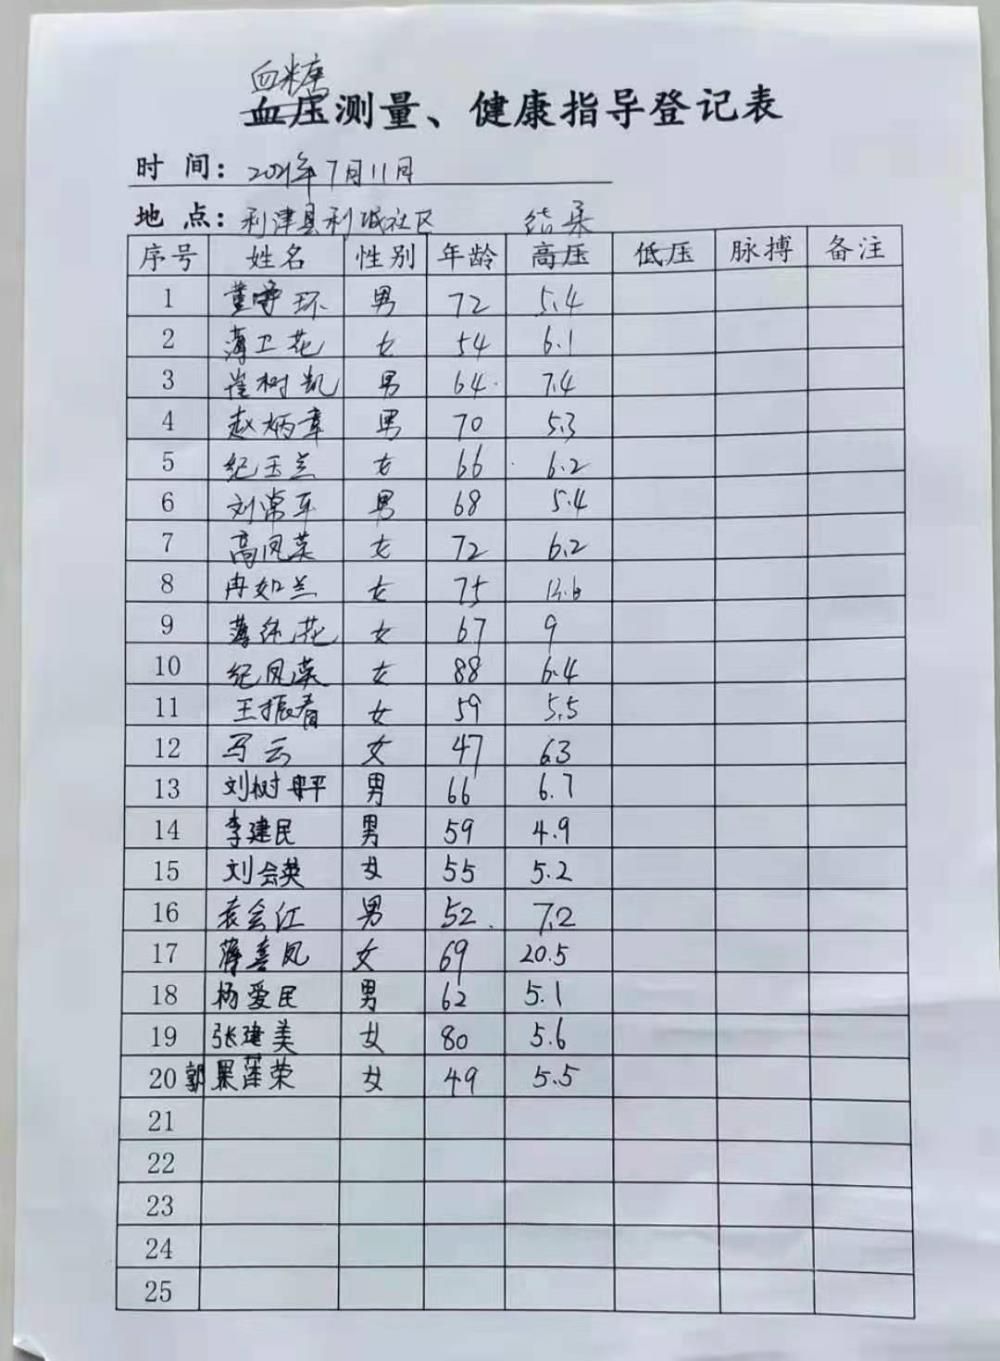 血糖
血压测量、健康指导登记表
时 间：2021年7月11日
地 点：利津县利城社区 结果
序号 姓名 性别 年龄 高压 低压 脉搏 备注
1 董 环 男 72 5.4
2 薄卫花 女 54 6.1
3 崔树凯 男 64 7.4
4 赵炳章 男 70 5.3
5 纪玉兰 女 66 6.2
6 刘常军 男 68 5.4
7 高凤英 女 72 6.2
8 冉如兰 女 75 13.6
9 薄 花 女 67 9
10 纪凤英 女 88 6.4
11 王振香 女 59 5.5
12 马云 女 47 6.3
13 刘树平 男 66 6.7
14 李建民 男 59 4.9
15 刘会英 女 55 5.2
16 袁会江 男 52 7.2
17 薄喜凤 女 69 20.5
18 杨爱民 男 62 5.1
19 张建美 女 80 5.6
20 郭莲荣 女 49 5.5
21
22
23
24
25